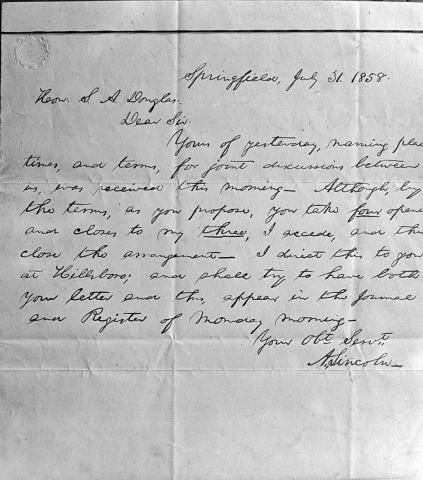 Springfield, July 31. 1858.
Hon. S. A. Douglas.
Dear Sir.
Yours of yesterday, naming place
times, and terms, for joint discussions between
us, was received this morning— Although, by
the terms, as you propose, you take four open
and closes to my three, I accede, and thus
close the arrangement— I direct this to you
at Hillsboro; and shall try to have both
your letter and this, appear in the Journal
and Register of Monday morning—
Your Obt. Servt.
A. Lincoln—